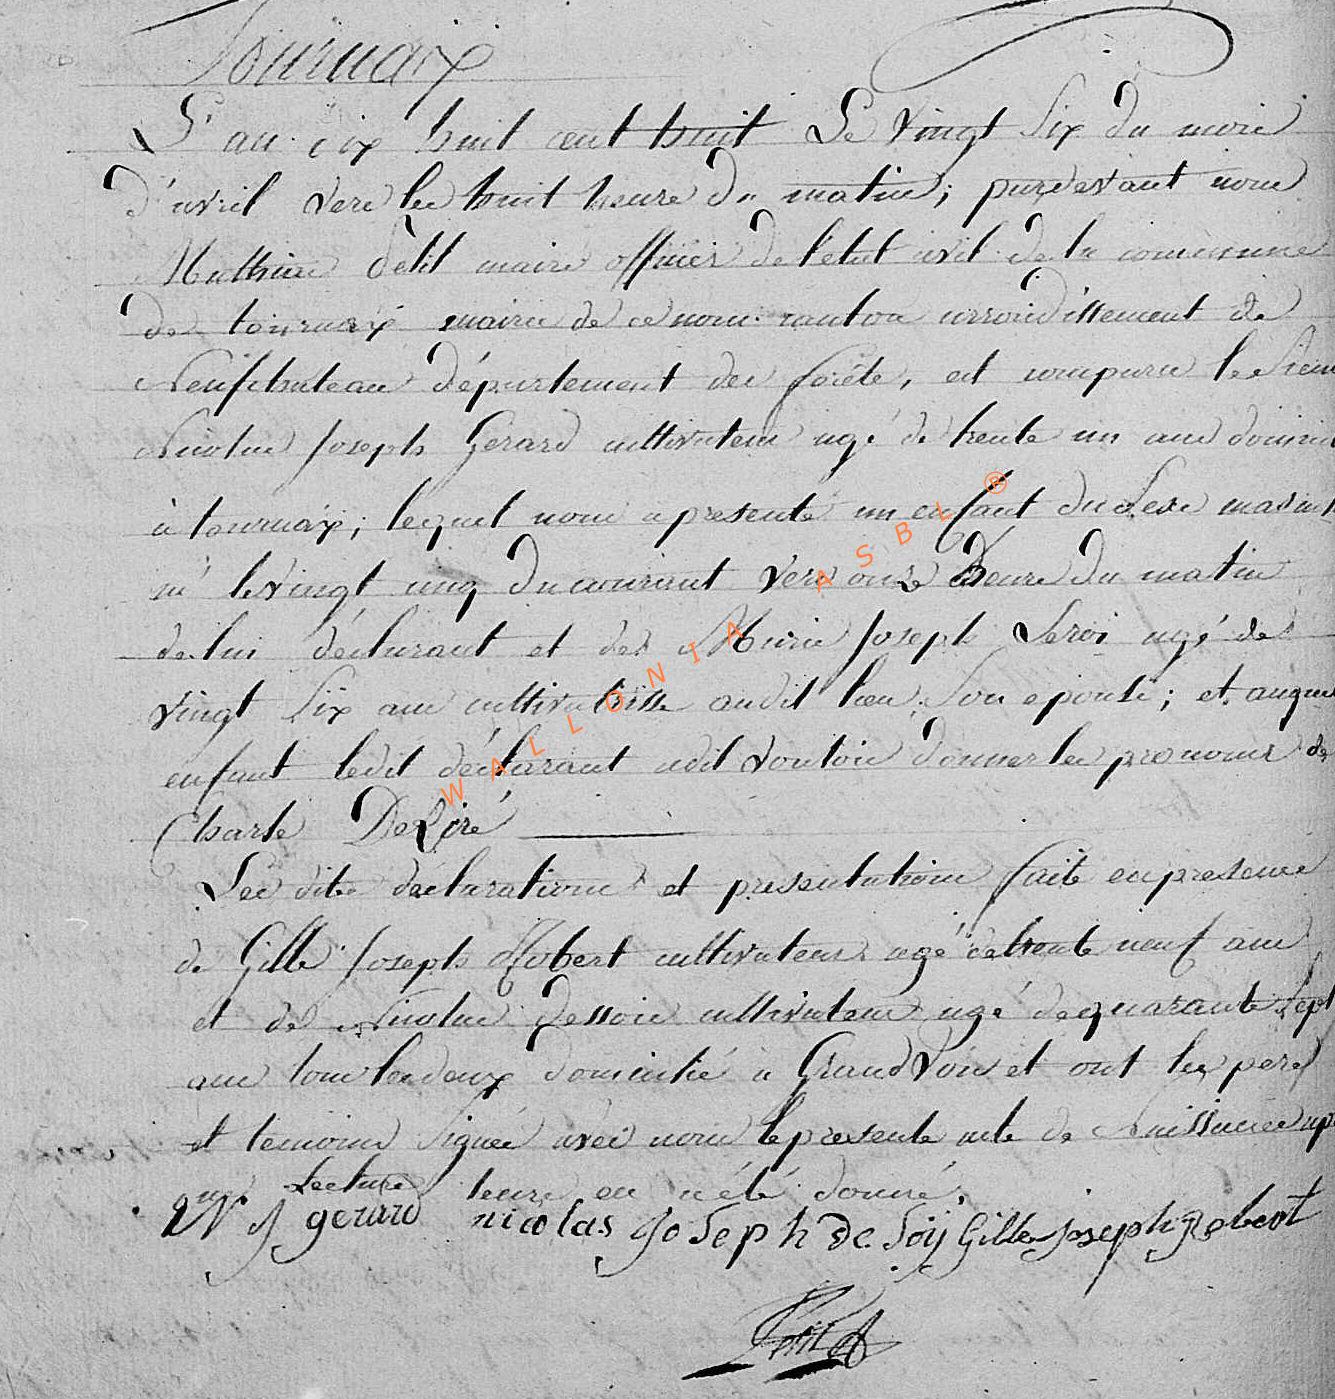 Tournaix
L'an dix huit cent huit Le vingt Six du mois
d'avril vers les huit heure du matin; pardevant nous
Mathieu Petit maire officier de l'état civil de la commune
de tournaix mairie de ce nom canton arrondissement de
Neufchateau département des forête, est comparu le Sieur
Nicolas Joseph Gerard cultivateur agé de trente un ans domici
à tournaix; lequel nous a presenté un enfant du Sexe mascul
né le vingt cinq du courant vers onze heure du matin
de lui déclarant et de Marie Joseph Leroi agé de
vingt Six ans cultivatrisse audit lieu Son epouse; et auquel
enfant ledit déclarant a dit vouloir donner les prenoms de
Charle Deziré
Les dite déclarations et presentations faite en presence
de Gille Joseph Robert cultivateur agé de trente neuf ans
et de Nicolas Dessoie cultivateur agé de quarante Sept
ans tous les deux domicilié à Grandvoir et ont les pere
et temoins Signés avec nous le present acte de Naissance apr
que Lecture leure en a été donné.
N J gerard nicolas JoSeph de Soÿ Gille joseph Robert
Petit
WALLONIA ASBL ®